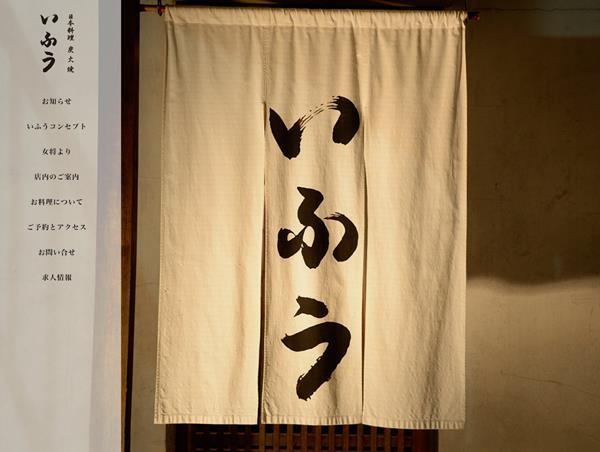 日本料理 炭火焼
いふう
お知らせ
いふうコンセプト
女将より
店内のご案内
お料理について
ご予約とアクセス
お問い合せ
求人情報
いふう